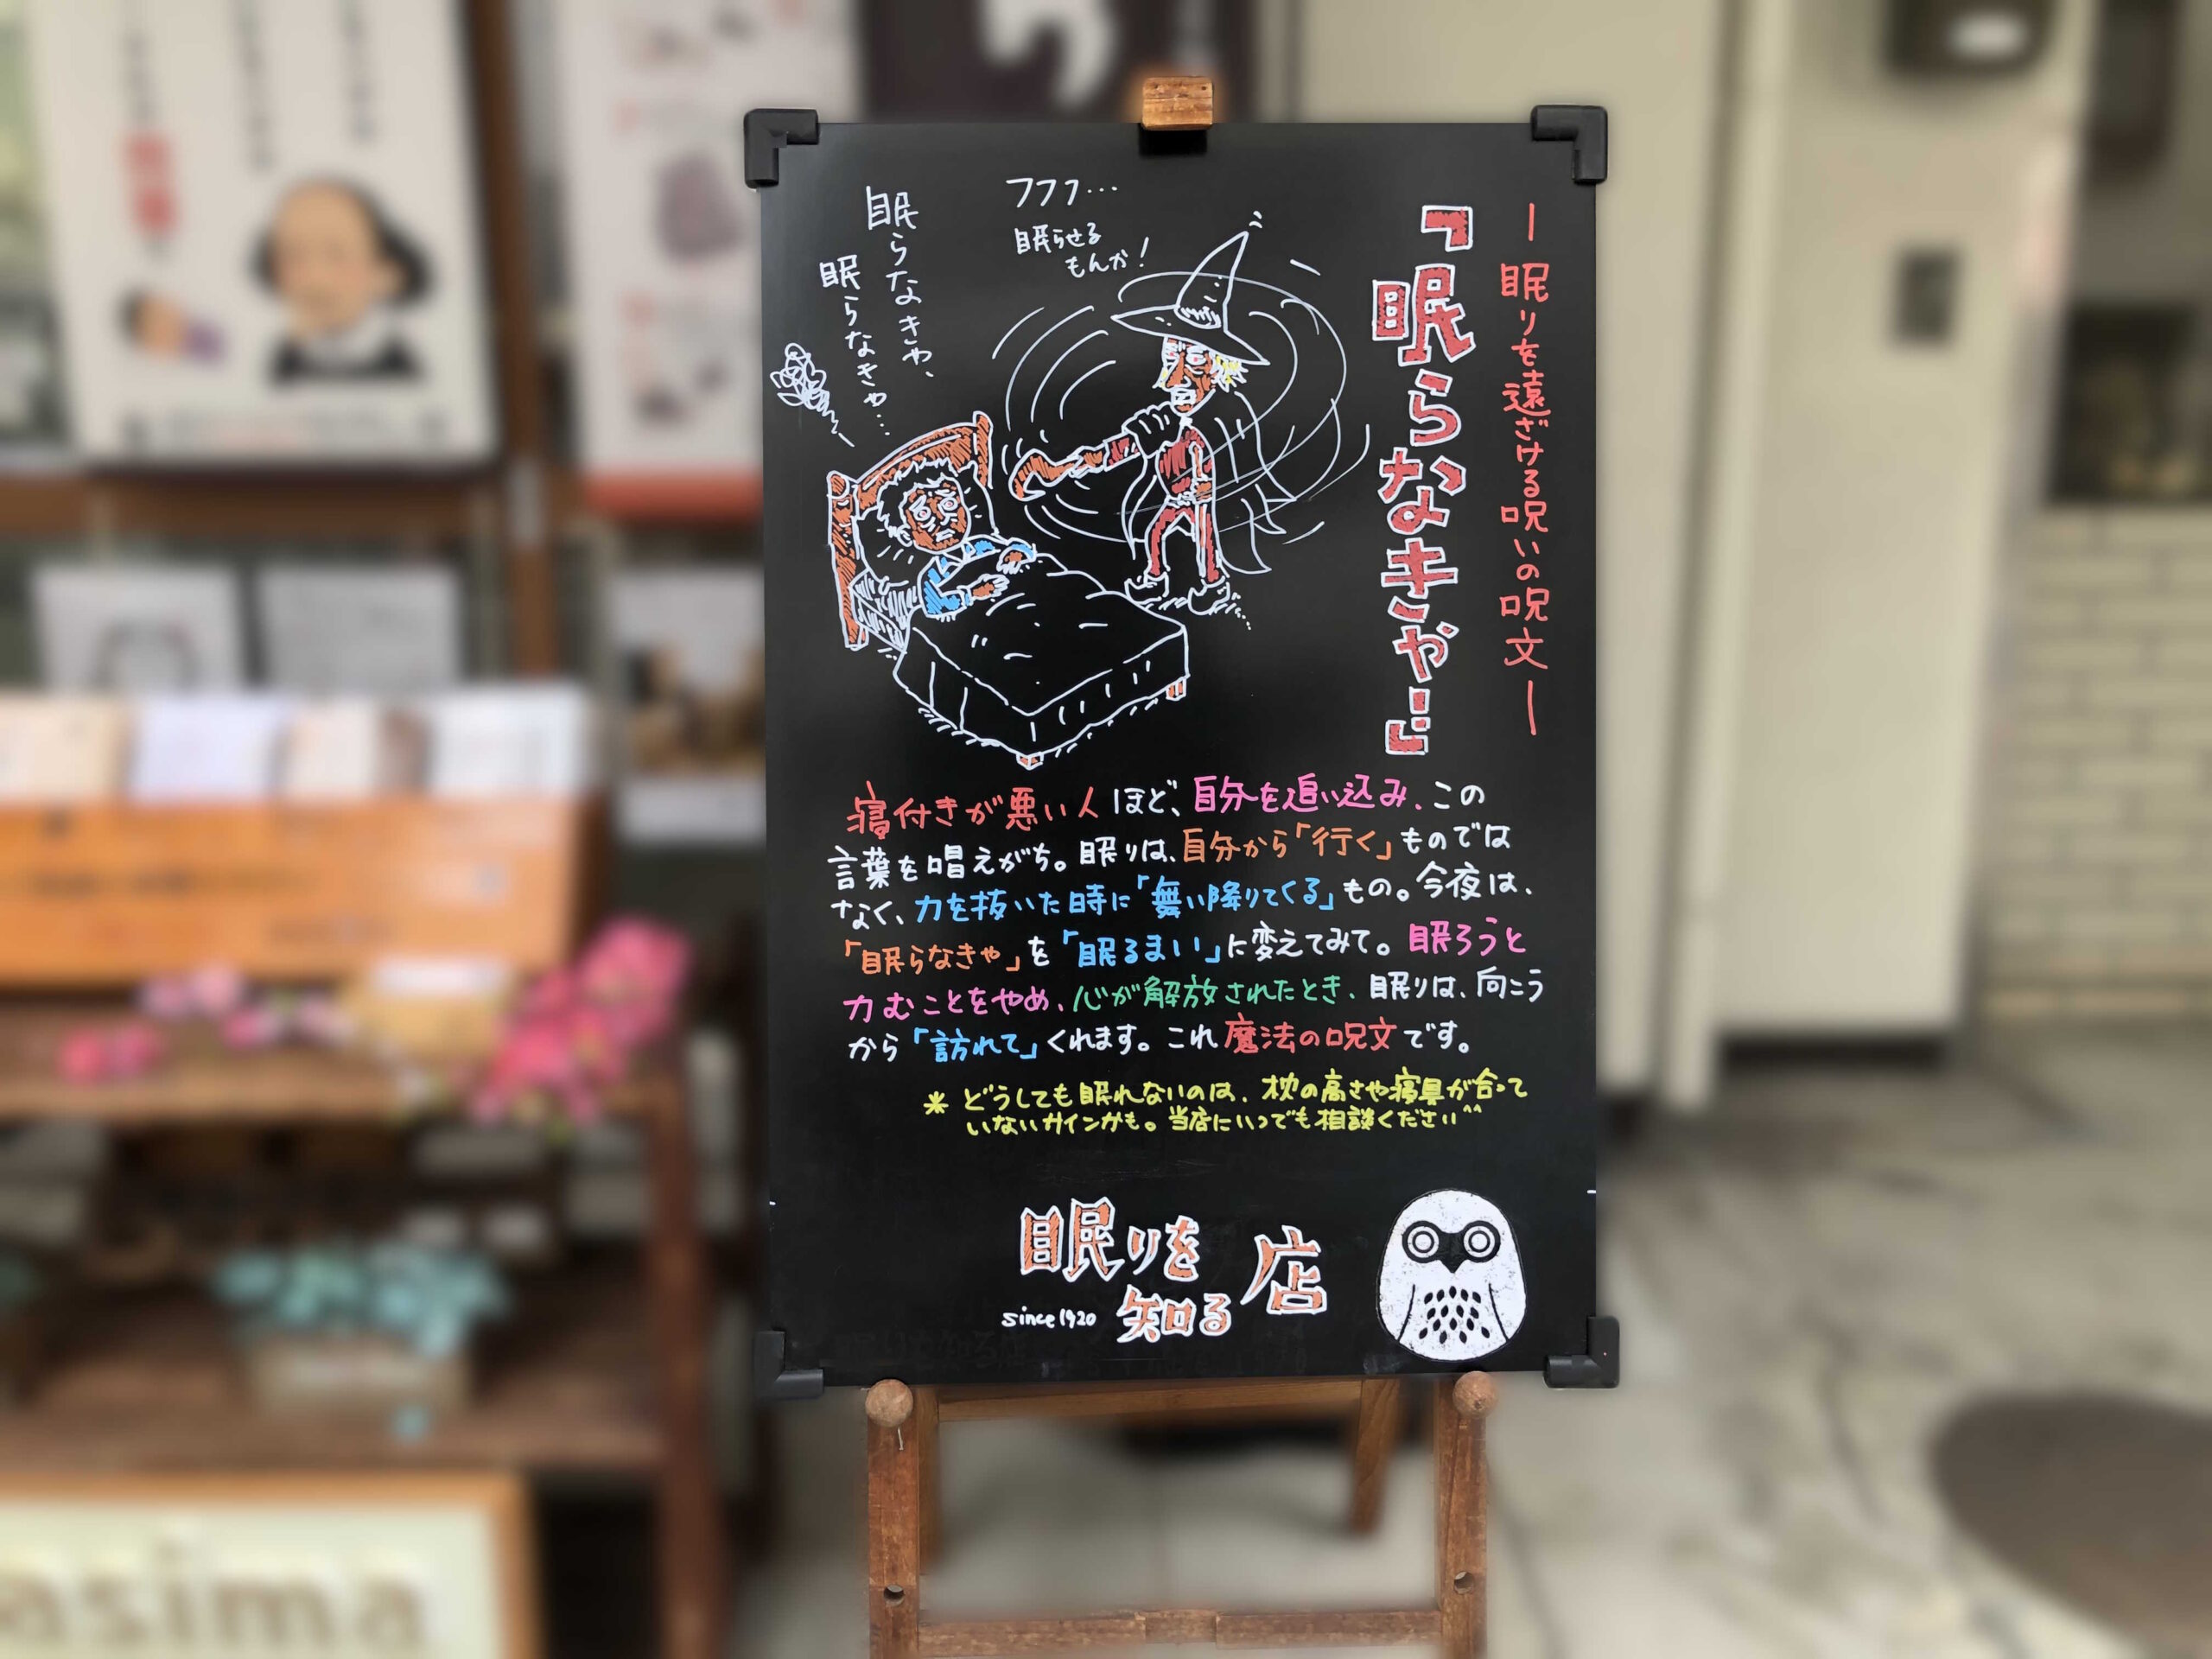 ー眠りを遠ざける呪いの呪文ー
『眠らなきゃ…』
フフフ…
眠らせる
もんか!
眠らなきゃ、
眠らなきゃ…
寝付きが悪い人ほど、自分を追い込み、この
言葉を唱えがち。眠りは、自分から「行く」ものでは
なく、力を抜いた時に「舞い降りてくる」もの。今夜は、
「眠らなきゃ」を「眠るまい」に変えてみて。眠ろうと
力むことをやめ、心が解放されたとき、眠りは、向こう
から「訪れて」くれます。これ魔法の呪文です。
* どうしても眠れないのは、枕の高さや寝具が合って
いないサインかも。当店にいつでも相談ください^^
眠りを
知る
店
since1920
asima